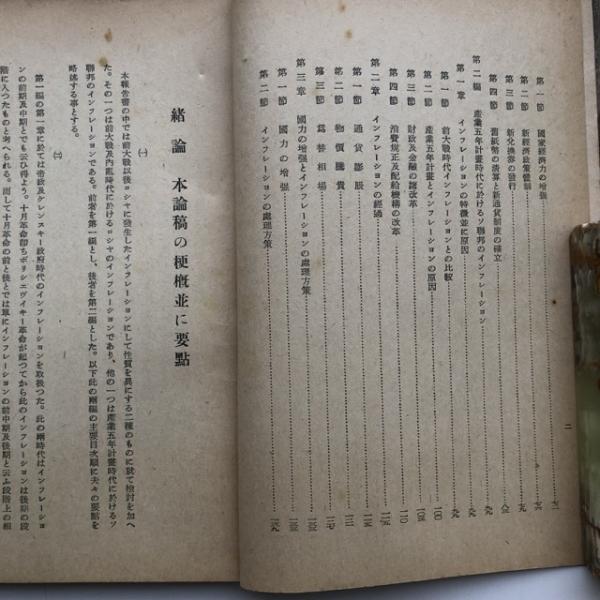 二
第一節 國家經濟力の増强
第二節 新經濟政策體制
第三節 新兌換券の發行
第四節 舊紙幣の清算と新通貨制度の確立
第二編 產業五年計畫時代に於けるソ聯邦のインフレーション
第一章 インフレーションの特徵並に原因
第一節 前大戰時代インフレーションとの比較
第二節 產業五年計畫とインフレーションの原因
第三節 財政及金融の諸改革
第四節 消費規正及配給機構の改革
第二章 インフレーションの經過
第一節 通貨膨脹
第二節 物價騰貴
第三節 爲替相場
第三章 國力の增强とインフレーションの處理方策
第一節 國力の增强
第二節 インフレーションの處理方策
緒論 本論稿の梗槪並に要點
(一)
本報告書の中では前大戰以後ロシヤに發生したインフレーションにして性質を異にする二種のものに就て檢討を加へ
た。その一つは前大戰及內亂時代に於けるロシヤのインフレーションであり、他の一つは產業五年計畫時代に於けるソ
聯邦のインフレーションである。前者を第一編とし、後者を第二編とした。以下此の兩編の主要目次順に夫々の要點を
略述する事とする。
(二)
第一編の第一章に於ては帝政及ケレンスキー政府時代のインフレーションを取扱つた。此の兩時代はインフレーショ
ンの前期及中期とでも云ひ得よう。十月革命卽ちボリシエヴイキー革命が起つてから此のインフレーションは後期の段
階に入つたものと考へられる。而して十月革命の前と後とでは單にインフレーションの前中期及後期と云ふ段階上の相